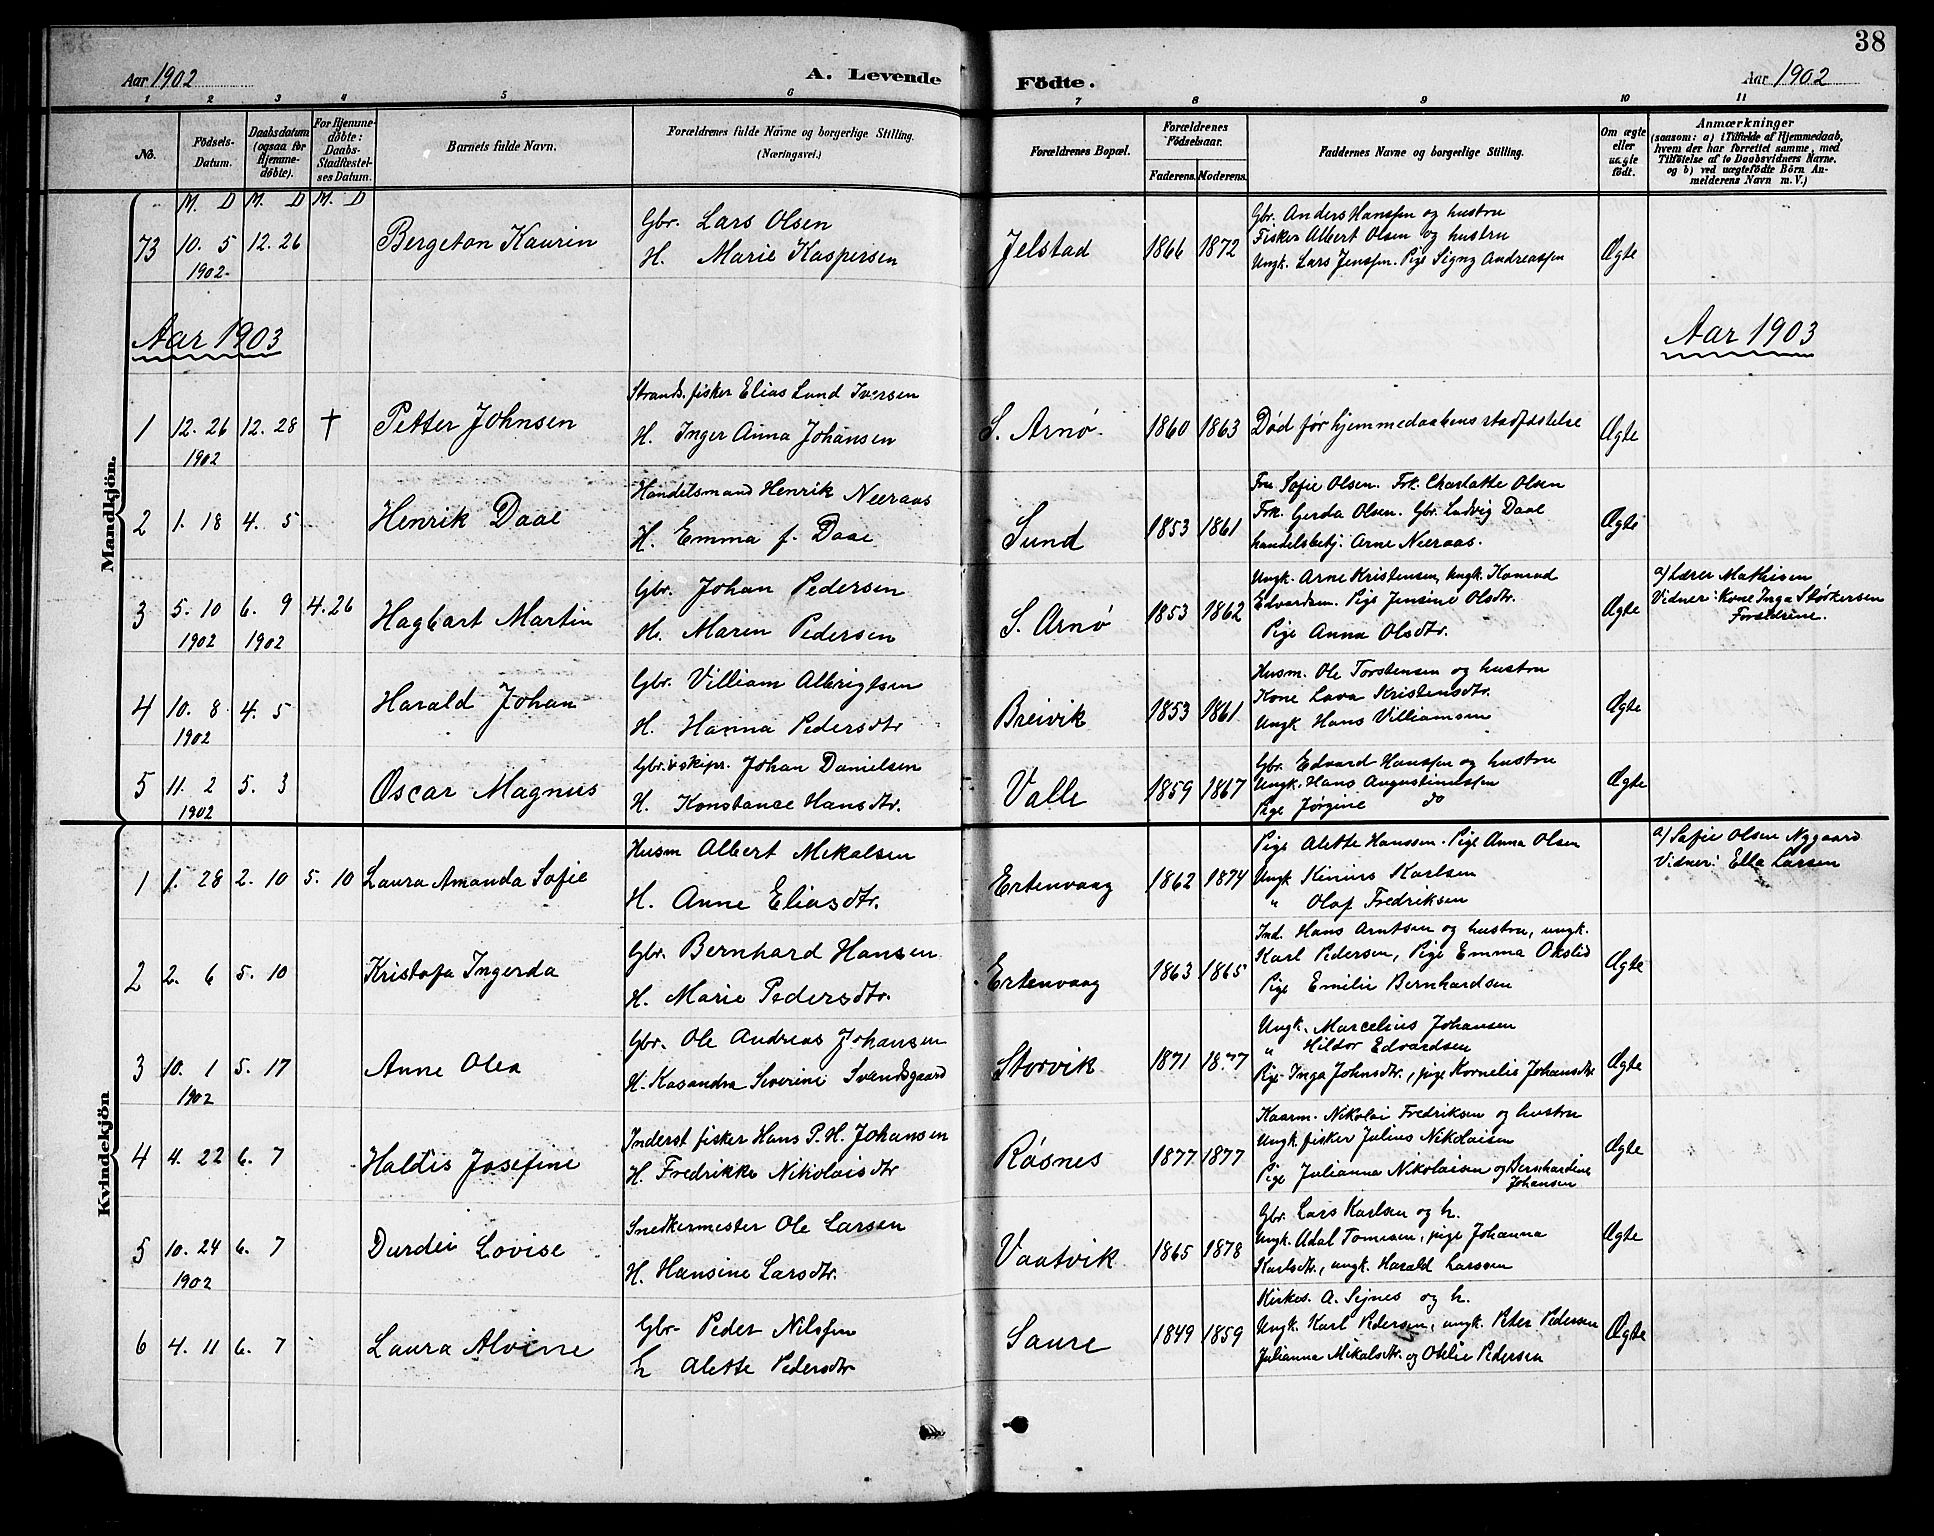 38
Aar 1902 A. Levende Födte. Aar 1902
1 2 3 4 5 6 7 8 9 10 11
No.
Födsels-Datum.
Daabsdatum (ogsaa for Hjemmedöbte).
For Hjemmedöbte: Daabs-Stadfæstelses Datum.
Barnets fulde Navn.
Forældrenes fulde Navne og borgerlige Stilling.
(Næringsvei.)
Forældrenes Bopæl.
Forældrenes Födselsaar.
Faderens. Moderens.
Faddernes Navne og borgerlige Stilling.
Om ægte eller uægte födt.
Anmærkninger
(saasom: a) i Tilfælde af Hjemmedaab, hvem der har forrettet samme, med Tilföielse af to Daabsvidners Navne. og b) ved uægtefödte Börn Anmelderens Navn m. V.)
M. D M. D M. D
Mandkjön.
73 10. 5 1902- 12. 26 Bergeton Kaurin
Gbr. Lars Olsen
H. Marie Kaspersen
Jelstad 1866 1872
Gbr. Anders Hanssen og hustru
Fisker Albert Olsen og hustru
Ungk. Lars Jenssen. Pige Signy Andreassen
Ægte
Aar 1903 Aar 1903
1 12. 26 1902 12. 28 † Petter Johnsen
Strands. fisker Elias Lund Iversen
H. Inger Anna Johansen
S. Arnø. 1860 1863
Død før hjemmedaabens stadfæstelse
Ægte
2 1. 18 4. 5 Henrik Daae
Handelsmand Henrik Neeraas
H. Emma f. Daae
Sund 1853 1861
Fru Sofie Olsen. Frk. Charlotte Olsen
Frk. Gerda Olsen. Gbr. Ludvig Daae
handelsbetj. Arne Neeraas.
Ægte
3 5. 10 1902 6. 9 1902 4. 26 Hagbart Martin
Gbr. Johan Pedersen
H. Maren Pedersen
S. Arnø 1853 1862
Ungk. Arne Kristensen, Ungk. Konrad
Edvardsen. Pige Jensine Olsdtr.
Pige Anna Olsdtr.
Ægte
a) Lærer Mathisen
Vidner: Kone Inga Størkersen
Forældrene.
4 10. 8 1902 4. 5 Harald Johan
Gbr. Villiam Albrigtsen
H. Hanna Pedersdtr
Breivik 1853 1861
Husm. Ole Torstensen og hustru
Kone Lava Kristensdtr.
Ungk Hans Villiamsen
Ægte
5 11. 2 1902 5. 3 Oscar Magnus
Gbr. skipr. Johan Danielsen
H. Konstance Hansdtr.
Valle 1859 1867
Gbr. Edvard Hanssen og hustru
Ungk. Hans Augustinussen
Pige Jørgine do
Ægte
Kvindekjön
1 1. 28 2. 10 5. 10 Laura Amanda Sofie
Husm Albert Mikalsen
H. Anne Eliasdtr.
Ertenvaag 1862 1874
Pige Alette Hanssen. Pige Anna Olsen
Ungk Kinius Karlsen
" Olaf Fredriksen
a) Sofie Olsen Nygaard
Vidner: Ella Larsen
2 2. 6 5. 10 Kristofa Ingerda
Gbr. Bernhard Hansen
H. Marie Pedersdtr.
Ertenvaag 1863 1865
Ind. Hans Arntsen og hustru, ungk.
Karl Pedersen, Pige Emma Okslid
Pige Emilie Bernhardsen
Ægte
3 10. 1 1902 5. 17 Anne Olea
Gbr. Ole Andreas Johansen
H. Kasandra Severine Svendsgaard
Storvik 1871
Ungk. Marcelius Johansen
" Hildor Edvardsen
Pige Inga Johnsdtr., pige Kornelie Johansdtr
Ægte
4 4. 22 6. 7 Haldis Josefine
Inderst fisker Hans P. H. Johansen
H. Fredrikke Nikolaisdtr
Råsnes 1877 1877
Kaarm. Nikolai Fredriksen og hustru
Ungk. fisker Julius Nikolaisen
Pige Julianna Nikolaisen og Bernhardine Johansen
Ægte
5 10. 24 1902 6. 7 Durdei Lovise
Snedkermester Ole Larsen
H. Hansine Larsdtr.
Vaatvik 1865 1878
Gbr. Lars Karlsen og h.
Ungk. Adal Tomesen, pige Johanna
Karlsdtr., ungk. Harald Larssen
Ægte
6 4. 11 6. 7 Laura Alvine
Gbr- Peder Nilssen
h Alette Pedersdtr
Saure 1849 1859
Kirkes. A. Sejnes og h.
Ungk. Karl Pedersen, ungk. Peter Pedersen
Julianna Mikalsdtr. og Otelie Pedersen
Ægte